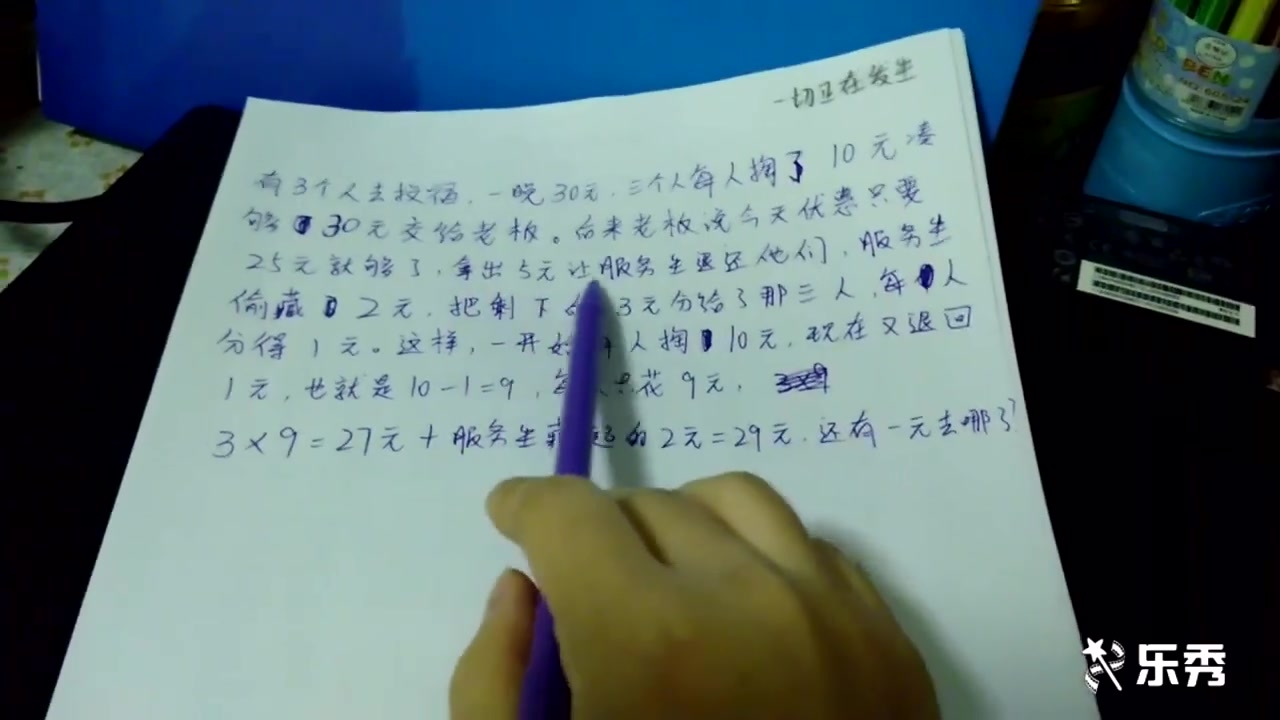 一切正在发生
有3个人去投宿,一晚30元.三个人每人掏了10元凑
够30元交给老板。后来老板说今天优惠只要
25元就够了,拿出5元让服务生退还他们,服务生
偷藏2元,把剩下 3元分给了那三人,每人
分得1元。这样,一开始 人掏10元,现在又退回
1元,也就是10-1=9, 花9元,
3×9=27元+服务生 的2元=29元.还有一元去哪了?
BEN
乐秀